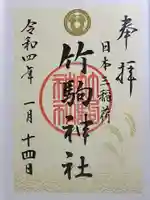 奉拝
日本三稲荷
竹駒神社
令和四年 一月 十四日